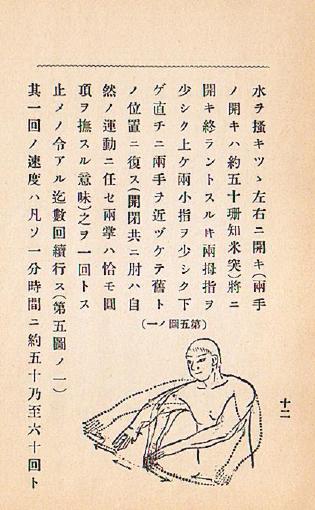 水ヲ掻キツヽ左右ニ開キ(兩手
ノ開キハ約五十珊知米突)將ニ
開キ終ラントスルヤ兩拇指ヲ
少シク上ケ兩小指ヲ少シク下
ゲ直チニ兩手ヲ近ヅケテ舊ト
ノ位置ニ復ス(開閉共ニ肘ハ自
然ノ運動ニ任セ兩掌ハ恰モ圓
項ヲ撫スル意味)之ヲ一回トス
止メノ令アル迄數回續行ス(第五圖ノ一)
其一回ノ速度ハ凡ソ一分時間ニ約五十乃至六十回ト
(第五圖ノ一)
十二